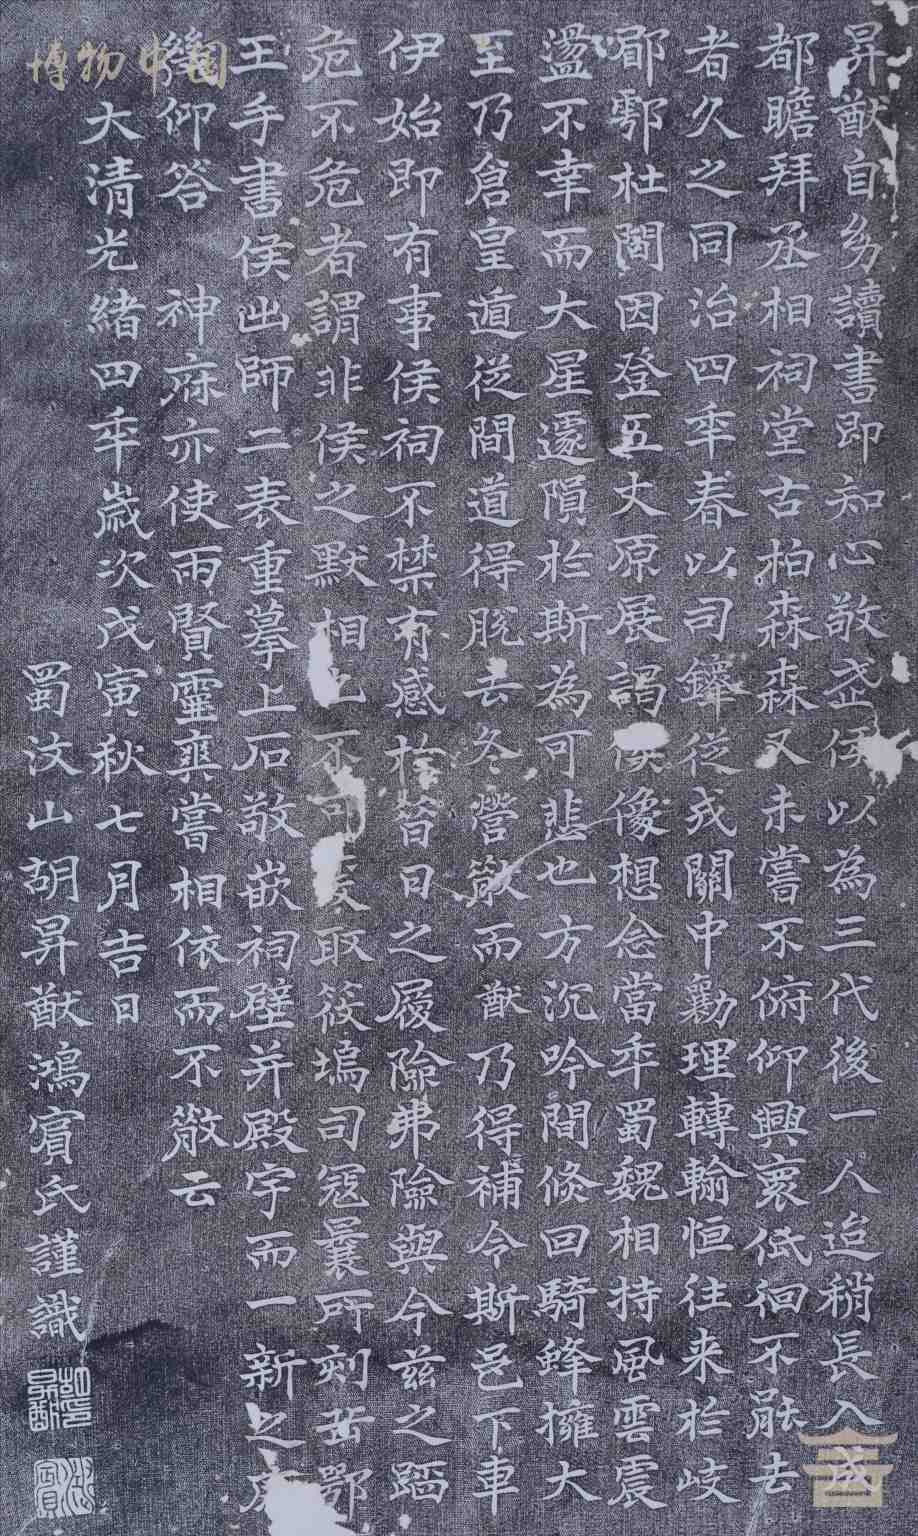 昇猷自幼讀書即知心敬武侯以為三代後一人迨稍長入成
都瞻拜丞相祠堂古柏森森又未嘗不俯仰興衷低徊不能去
者久之同治四年春以司鐸從戎關中勷理轉輸恒往來於岐
郿鄠杜閒因登五丈原展謁侯像想念當年蜀魏相持風雲震
盪不幸而大星遽隕於斯為可悲也方沉吟間倏回騎蜂擁大
至乃倉皇遁從間道得脫去冬營散而猷乃得補令斯邑下車
伊始即有事侯祠不禁有感於昔日之履險弗險與今茲之蹈
危不危者謂非侯之默相也不可爰取筱塢司寇曩所刻岳鄂
王手書侯出師二表重摹上石敬嵌祠壁并殿宇而一新之庶
幾仰答 神庥亦使兩賢靈爽嘗相依而不散云
大清光緒四年歲次戊寅秋七月吉日
蜀汶山胡昇猷鴻賓氏謹識
胡印昇猷
鴻賓
博物中国